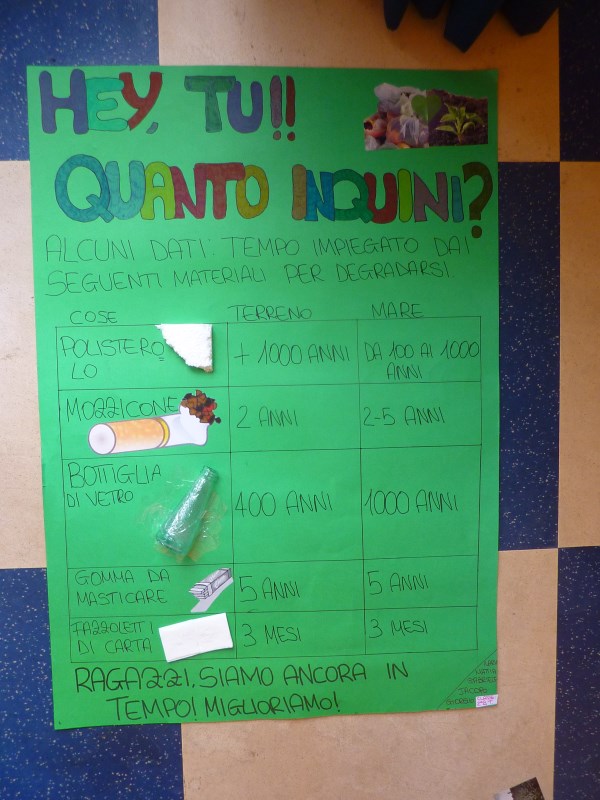 HEY, TU!!
QUANTO INQUINI?
ALCUNI DATI: TEMPO IMPIEGATO DAI
SEGUENTI MATERIALI PER DEGRADARSI
COSE TERRENO MARE
POLISTERO
LO
+ 1000 ANNI
DA 100 AI 1000
ANNI
MOZZICONE
2 ANNI
2-5 ANNI
BOTTIGLIA
DI VETRO
400 ANNI
1000 ANNI
GOMMA DA
MASTICARE
5 ANNI
5 ANNI
FAZZOLETTI
DI CARTA
3 MESI
3 MESI
RAGAZZI, SIAMO ANCORA IN
TEMPO! MIGLIORIAMO!